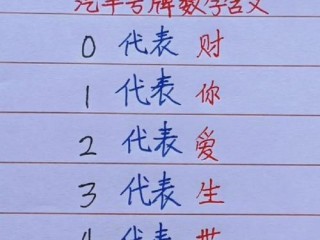 汽车号牌数字含义
0 代表 财
1 代表 你
2 代表 爱
3 代表 生
4 代表 世